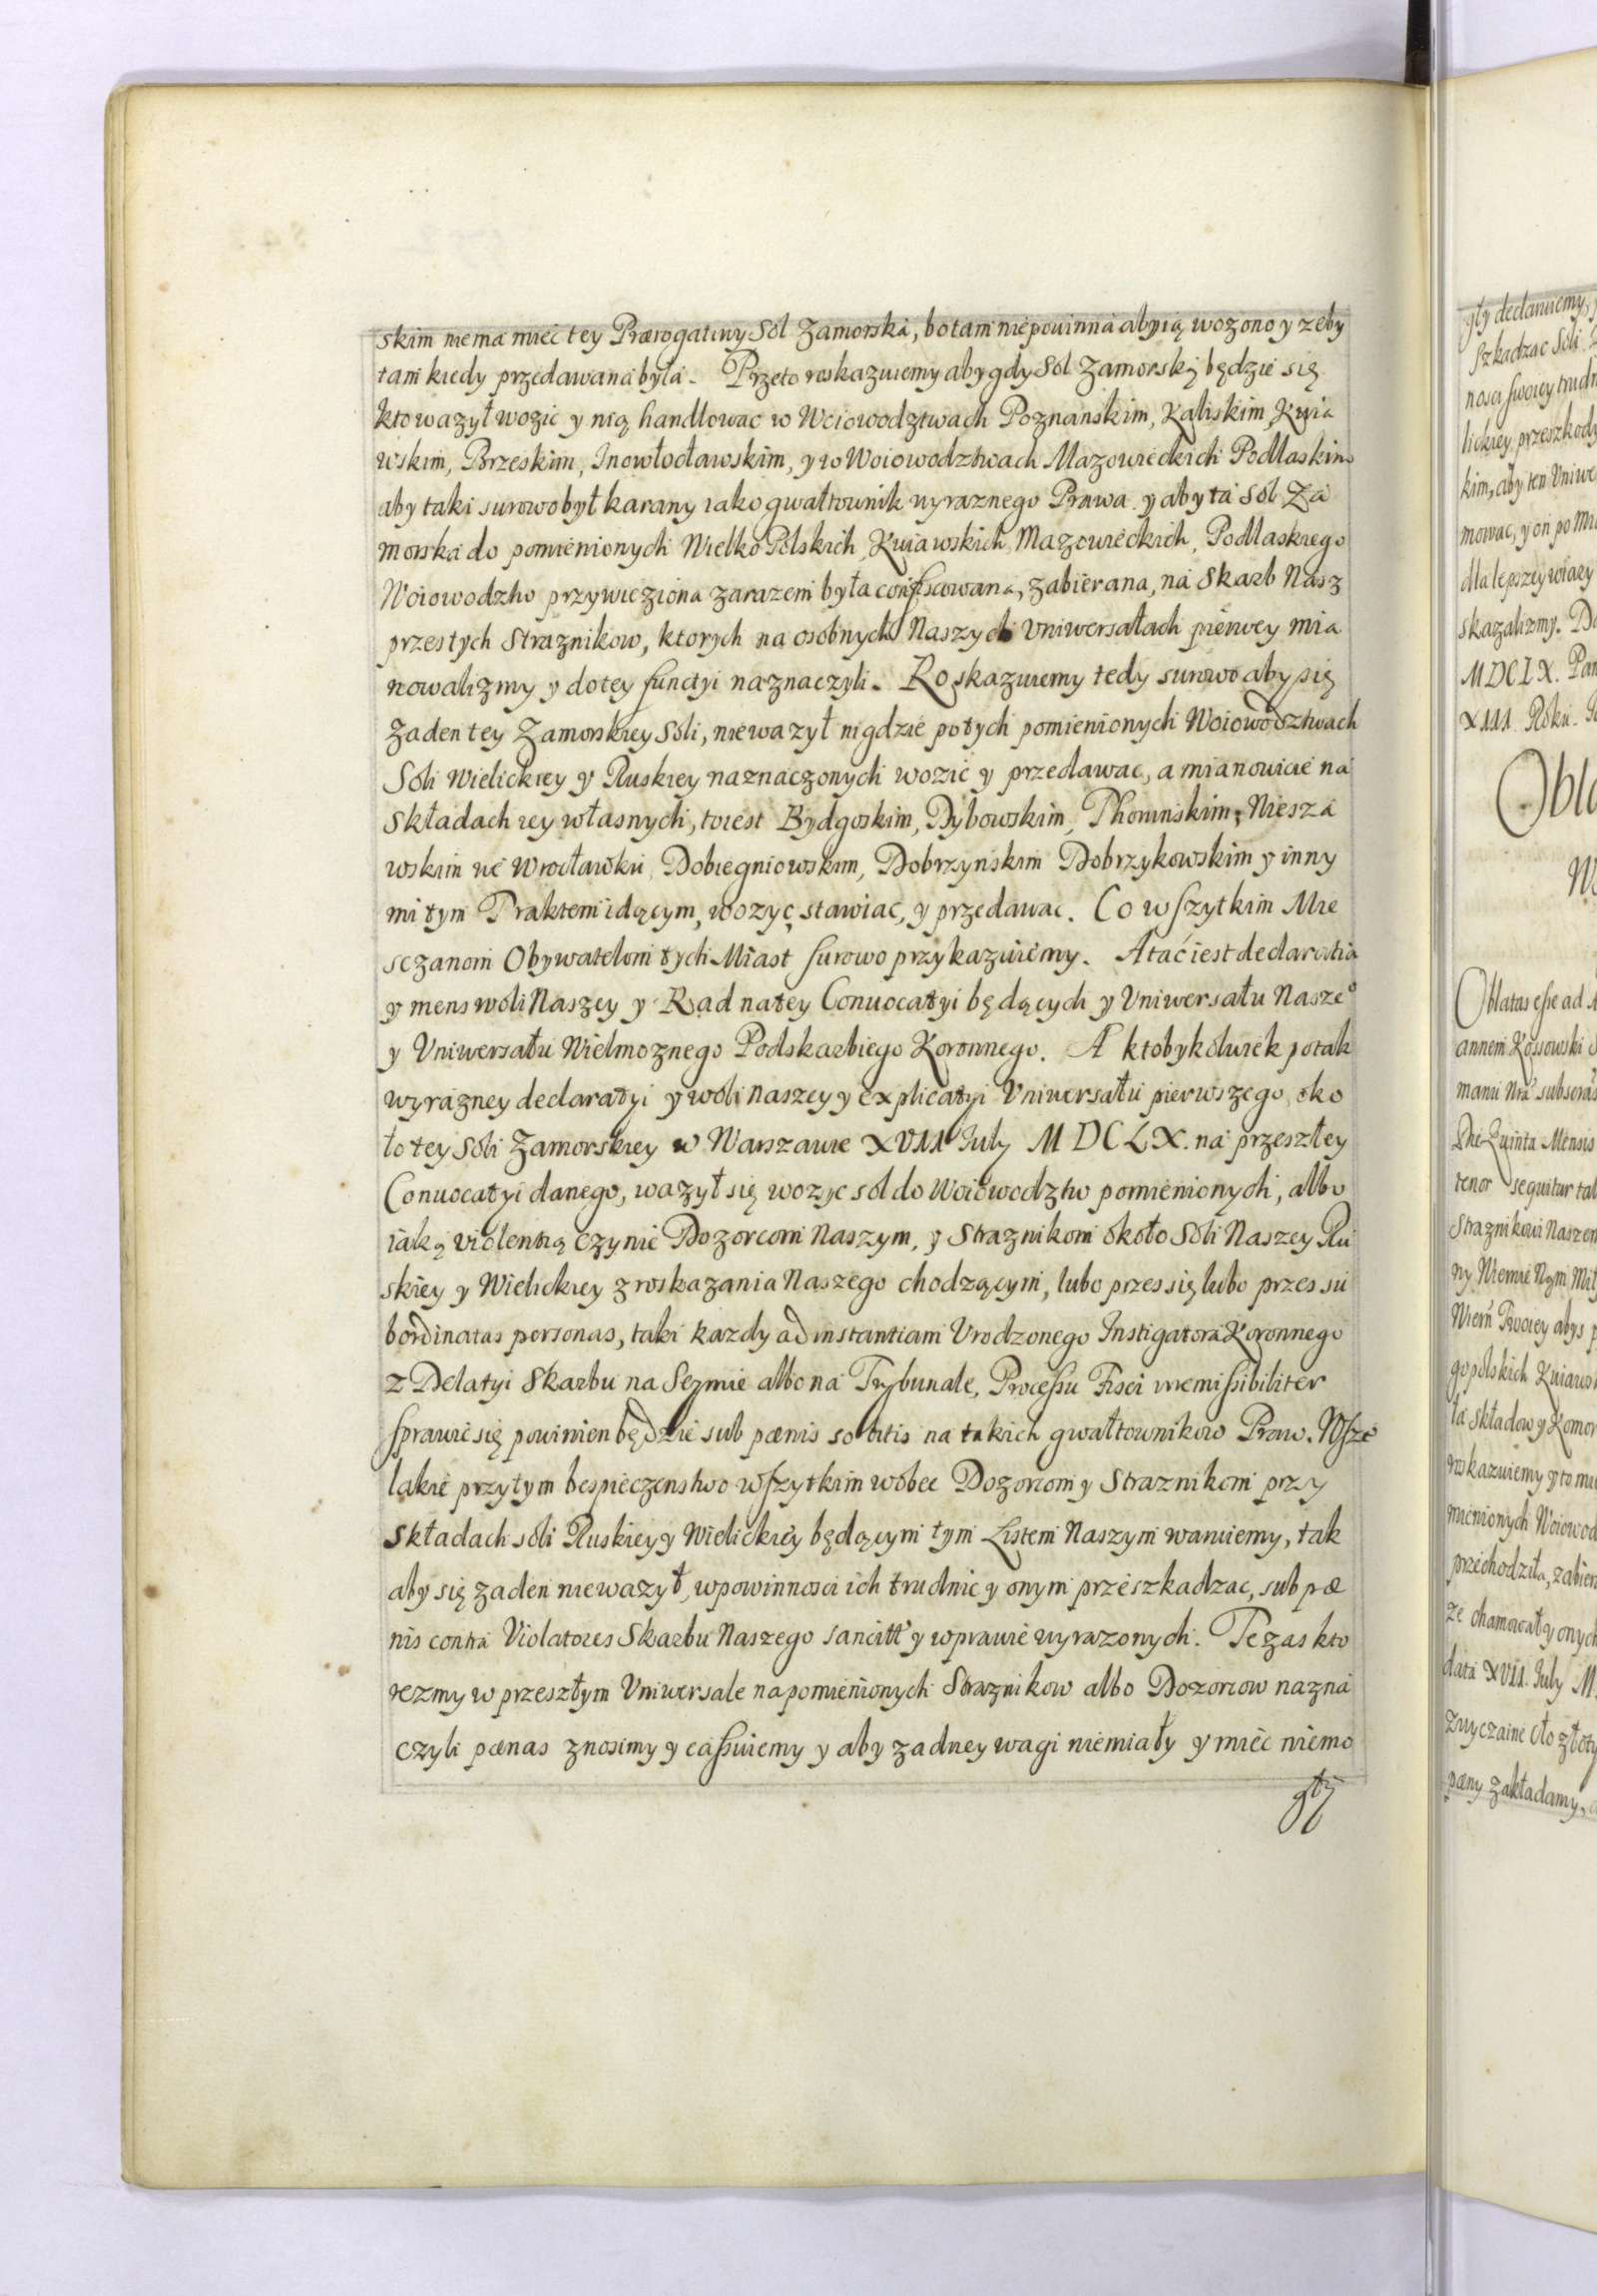 skim niema miec tey Prærogatiwy Sól Zamorska, bo tam niepowinna aby ią wozono y zeby
tam kiedy przedawana była. Przeto roskazuiemy aby gdy Sól Zamorską będzie się
kto wazył wozic y nią handlowac w Woiowodztwach Poznanskim, Kaliskim, Kuia
wskim, Brzeskim, Inowłocławskim, y w Woiowodztwach Mazowieckich Podlaskim
aby taki surowo był karany iako gwałtownik wyraznego Prawa y aby ta Sól Za
morska do pomienionych Wielko Polskich, Kuiawskich, Mazowieckich, Podlaskiego
Woiowodztw przywieziona zarazem była confiscowana, zabierana, na Skarb Nasz
przes tych Straznikow, ktorych na osobnych Naszych Vniwersałach pierwey mia
nowalizmy y do tey functyi naznaczyli. Roskazuiemy tedy surowo aby się
zaden tey Zamorskiey Soli, niewazył nigdzie po tych pomienionych Woiowodztwach
Soli Wielickiey y Ruskiey naznaczonych wozic y przedawac, a mianowicie na
Składach iey własnych, to iest Bydgoskim, Dybowskim, Thorunskim, Niesza
wskim we Wrocławku, Dobiegniowskim, Dobrzynskim Dobrzykowskim y inny
mi tym Traktem idącym, wozyc, stawiac, y przedawac. Co wszytkim Mie
sczanom Obywatelom tych Miast surowo przykazuiemy. A tać iest declaratia
y mens woli Naszey y Rad na tey Conuocatyi będących y Vniwersału Nasze°
y Vniwersału Wielmoznego Podskarbiego Koronnego. A ktobykolwiek po tak
wyrazney declaratyi y woli Naszey y explicatyi Vniwersału pierwszego oko
ło tey Soli Zamorskiey w Warszawie XVII July MDCLX. na przeszłey
Conuocatyi danego, wazył się wozyc sol do Woiowodztw pomienionych, albo
iaką violentią czynic Dozorcom Naszym, y Straznikom około Soli Naszey Ru
skiey y Wielickiey z roskazania Naszego chodzącym, lubo przes się lubo przes su
bordinatas personas, taki kazdy ad instantiam Vrodzonego Instigatora Koronnego
z Delatyi Skarbu na Seymie albo na Trybunale, Processu Fisci irremissibiliter
sprawic się powinien będzie sub pænis so litis na takich gwałtownikow Praw. Wsze
lakie przytym bespieczenstwo wszytkim wobec Dozorcom y Straznikom przy
Składach soli Ruskiey y Wielickiey będącym tym Listem Naszym waruiemy, tak
aby się zaden niewazył, w powinnosci ich trudnic y onym przeszkadzac, sub pæ
nis contra Violatores Skarbu Naszego sancitt' y w prawie wyrazonych. Te zas kto
rezmy w przeszłym Vniwersale na pomienionych Straznikow albo Dozorcow nazna
czyli pænas znosimy y cassuiemy y aby zadney wagi niemiały y miec niemo
gły